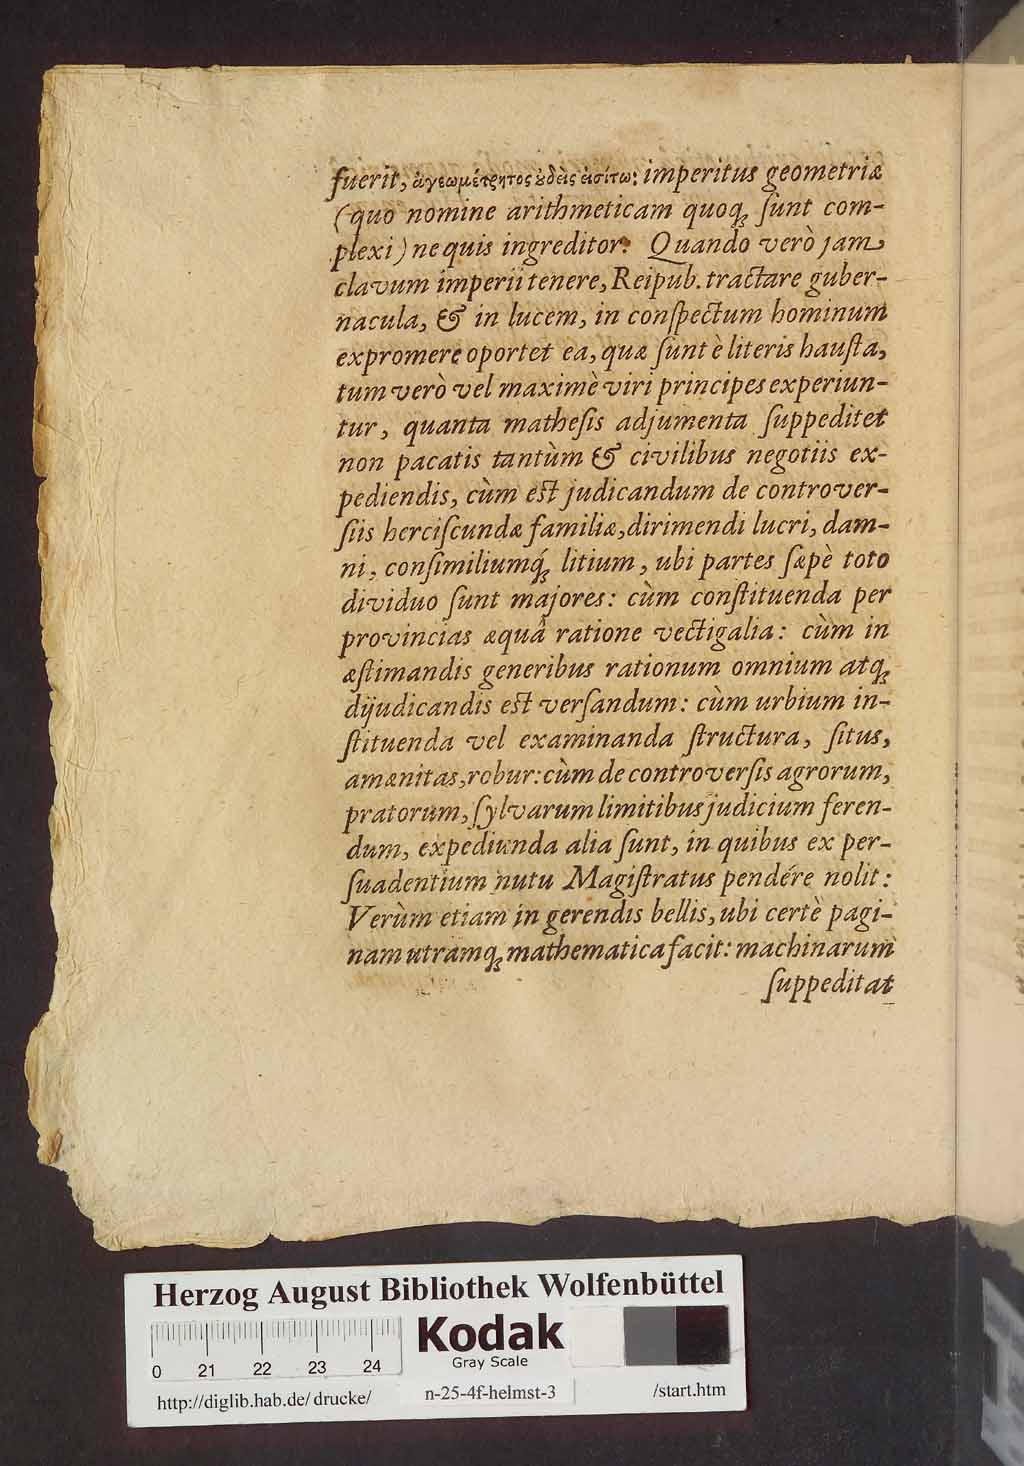 fuerit, ἀγεωμέτρητος ȣ̓δεὶς εἰσίτω: imperitus geometriæ
(quo nomine arithmeticam quoq; ſunt com-
plexi) ne quis ingreditor. Quando verò jam
clavum imperii tenere, Reipub. tractare guber-
nacula, & in lucem, in conſpectum hominum
expromere oportet ea, quæ ſunt è literis hauſta,
tum verò vel maximè viri principes experiun-
tur, quanta matheſis adjumenta ſuppeditet
non pacatis tantùm & civilibus negotiis ex-
pediendis, cùm eſt judicandum de controver-
ſiis herciſcundæ familiæ, dirimendi lucri, dam-
ni, conſimiliumq́; litium, ubi partes ſæpè toto
dividuo ſunt majores: cùm conſtituenda per
provincias æquâ ratione vectigalia: cùm in
æſtimandis generibus rationum omnium atq;
dijudicandis eſt verſandum: cùm urbium in-
ſtituenda vel examinanda ſtructura, ſitus,
amænitas, robur: cùm de controverſis agrorum,
pratorum, ſylvarum limitibus judicium feren-
dum, expediunda alia ſunt, in quibus ex per-
ſuadentium nutu Magiſtratus pendére nolit:
Verùm etiam in gerendis bellis, ubi certè pagi-
nam utramq; mathematica facit: machinarum
ſuppeditat
Herzog August Bibliothek Wolfenbüttel
Kodak
Gray Scale
0 21 22 23 24
http://diglib.hab.de/ drucke/ n-25-4f-helmst-3 /start.htm